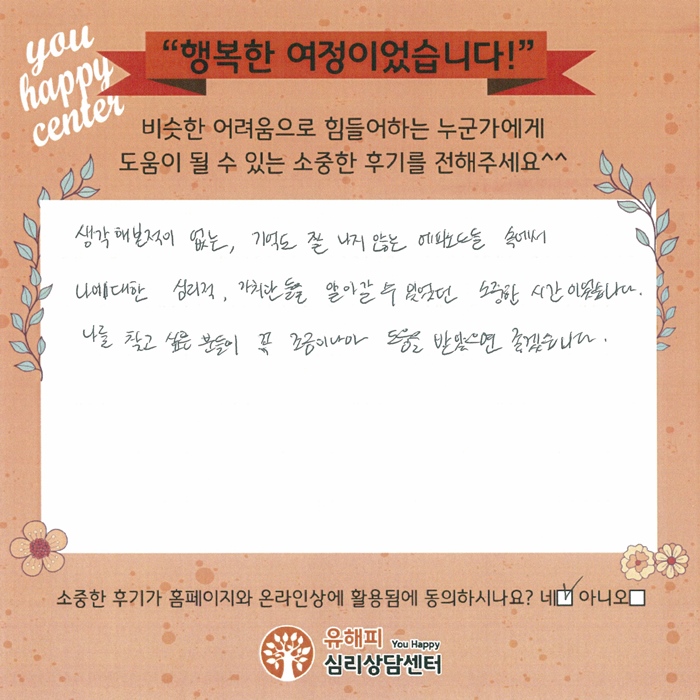 you
happy
center
“행복한 여정이었습니다!”
비슷한 어려움으로 힘들어하는 누군가에게
도움이 될 수 있는 소중한 후기를 전해주세요^^
생각해본적이 없는, 기억도 잘 나지 않는 에피소드들 속에서
나에대한 심리적, 가치관들을 알아갈 수 있었던 소중한 시간이었습니다.
나를 찾고 싶은 분들이 꼭 조금이나마 도움을 받았으면 좋겠습니다.
소중한 후기가 홈페이지와 온라인상에 활용됨에 동의하시나요? 네 아니오
유해피 You Happy
심리상담센터